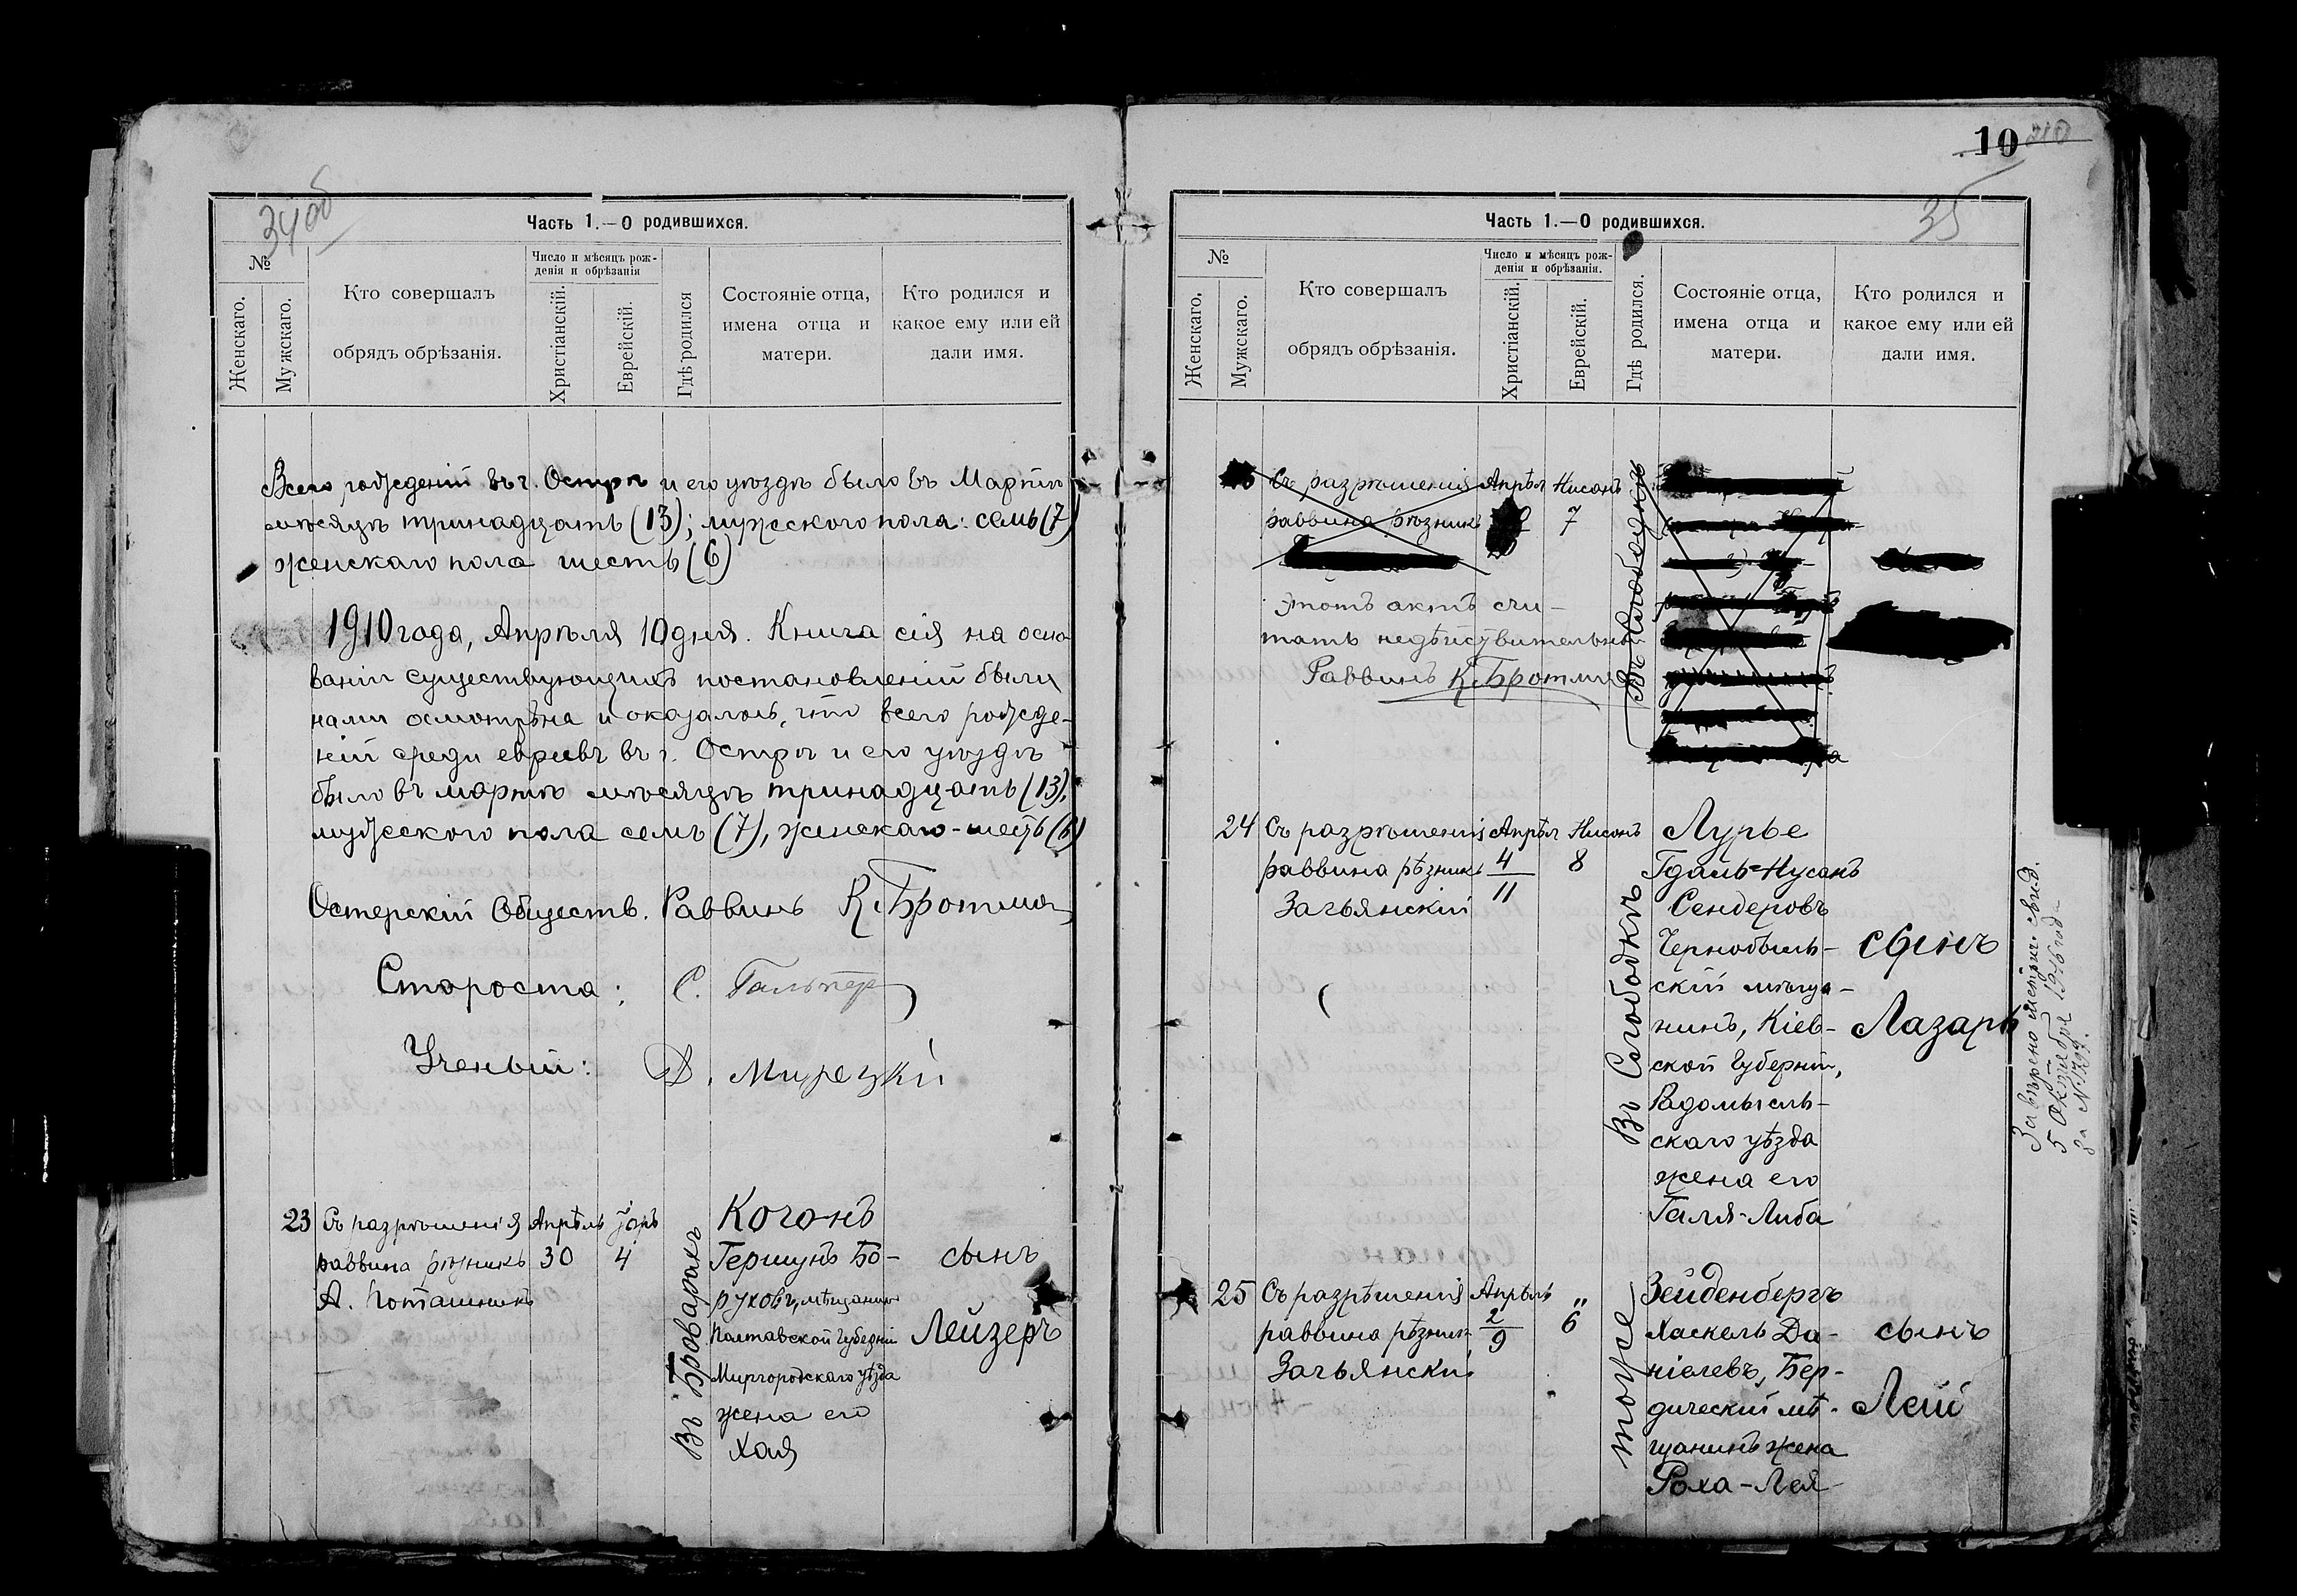 34 об
Часть 1.—О родившихся.
№
Женскаго.
Мужскаго.
Кто совершалъ
обрядъ обрѣзанія.
Число и мѣсяцъ рож-
денія и обрѣзанія
Христіанскій.
Еврейскій.
Гдѣ родился
Состояніе отца,
имена отца и
матери.
Кто родился и
какое ему или ей
дали имя.
Всего рожденій въ г. Острѣ и его уѣздѣ было въ Мартѣ
мѣсяцѣ тринадцать (13); мужеского пола: семь (7)
женскаго пола шесть (6)
1910 года, Апрѣля 10 дня. Книга сія на осно
ваніи существующихъ постановленій были
нами осмотрѣна и оказалось, что всего рожде-
ній среди евреевъ въ г. Острѣ и его уѣздѣ
было въ мартѣ мѣсяцѣ тринадцать (13),
мужеского пола семь (7), женскаго - шесть (6)
Остерскій Обществ. Раввинъ К. Бротман
Староста: С. Гальпер
Ученый: Д. Мирецкій
23
Съ разрѣшенія
раввина рѣзникъ
А. Поташникъ
Апрѣль
30
Іаръ
4
Въ Броварахъ
Когонъ
Гершунъ Бо-
руховъ, мѣщанинъ
Полтавской Губерніи
Миргородскаго уѣзда
жена его
Хая
сынъ
Лейзеръ
10
35
Часть 1.—О родившихся.
№
Женскаго.
Мужскаго.
Кто совершалъ
обрядъ обрѣзанія.
Число и мѣсяцъ рож-
денія и обрѣзанія.
Христіанскій.
Еврейскій.
Гдѣ родился.
Состояніе отца,
имена отца и
матери.
Кто родился и
какое ему или ей
дали имя.
Съ разрѣшенія
раввина рѣзникъ
Апрѣль
Нисонъ
7
Въ Слободкѣ
Этотъ актъ счи-
тать недѣйствительнымъ
Раввинъ К. Бротман
24
Съ разрѣшенія
раввина рѣзникъ
Загьянскій
Апрѣль
4
11
Нисонъ
8
Въ Слободкѣ
Лурье
Гдаль-Нусонъ
Сендеровъ
Чернобыль-
скій мѣща-
нинъ, Кіев-
ской Губерніи,
Радомысль-
скаго уѣзда
жена его
Галя-Либа
сынъ
Лазарь
Завѣрено метрич. свид.
5 Октября 1926 года
за №
25
Съ разрѣшенія
раввина рѣзник
Загьянскій
Апрѣль
2
9
"
6
тоже
Зейденбергъ
Хаскель Да-
ніелевъ, Бер-
дическій мѣ-
щанинъ жена
Роха-Лея
сынъ
Лейб